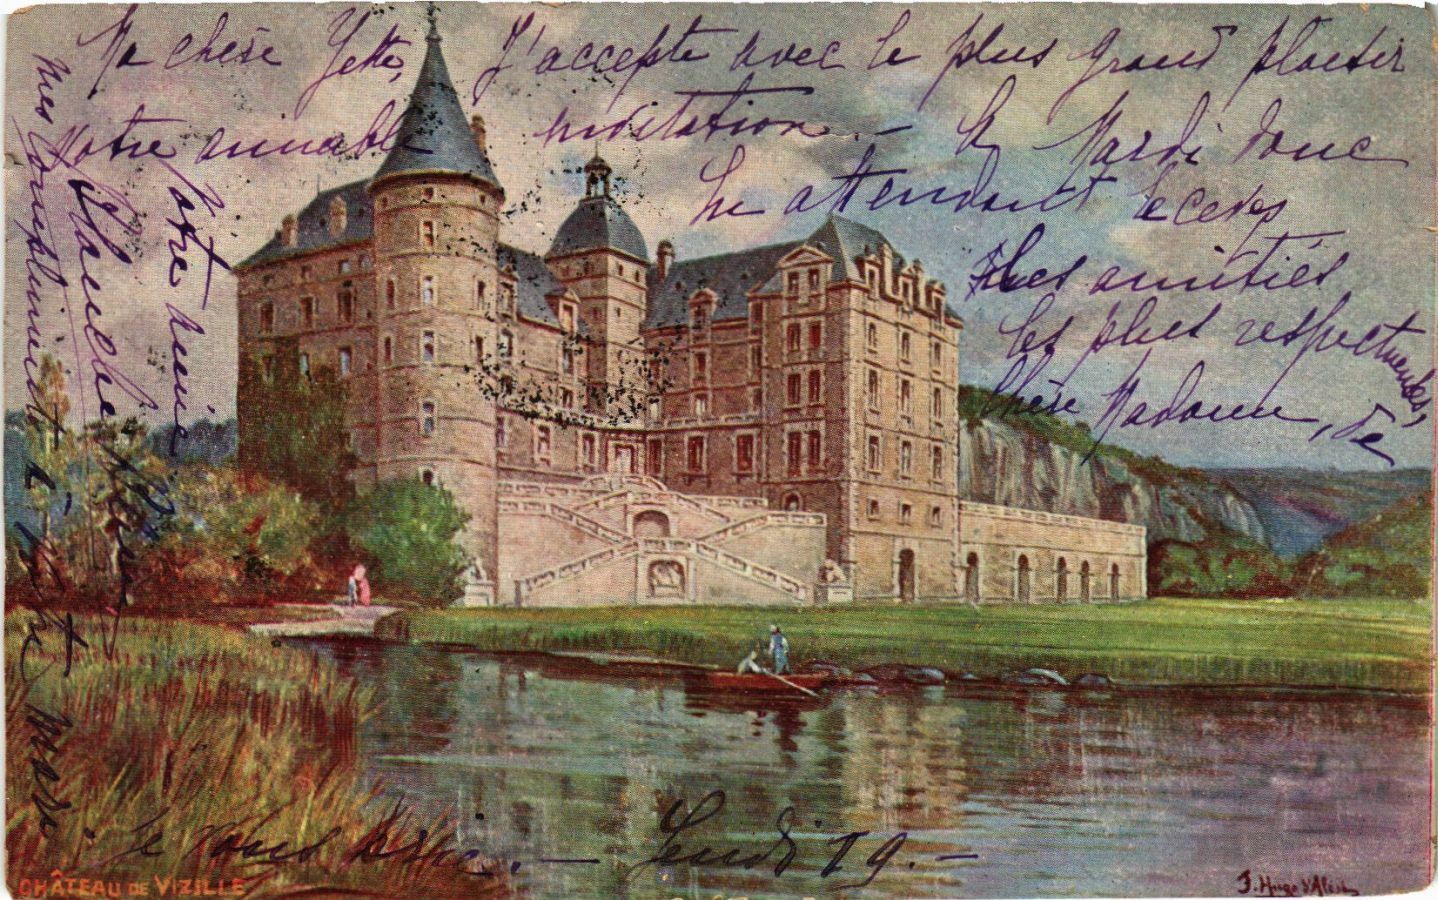 Ma chère Yette, J'accepte avec le plus grand plaisir
votre aimable invitation. — A Mardi donc
En attendant recevez
mes amitiés
les plus respectueuses,
Chère Madame, de
votre amie
Blanche
mes compliments à votre
je vous prie. — Jeudi 19. —
CHÂTEAU DE VIZILLE
F. Hugo d'Alési